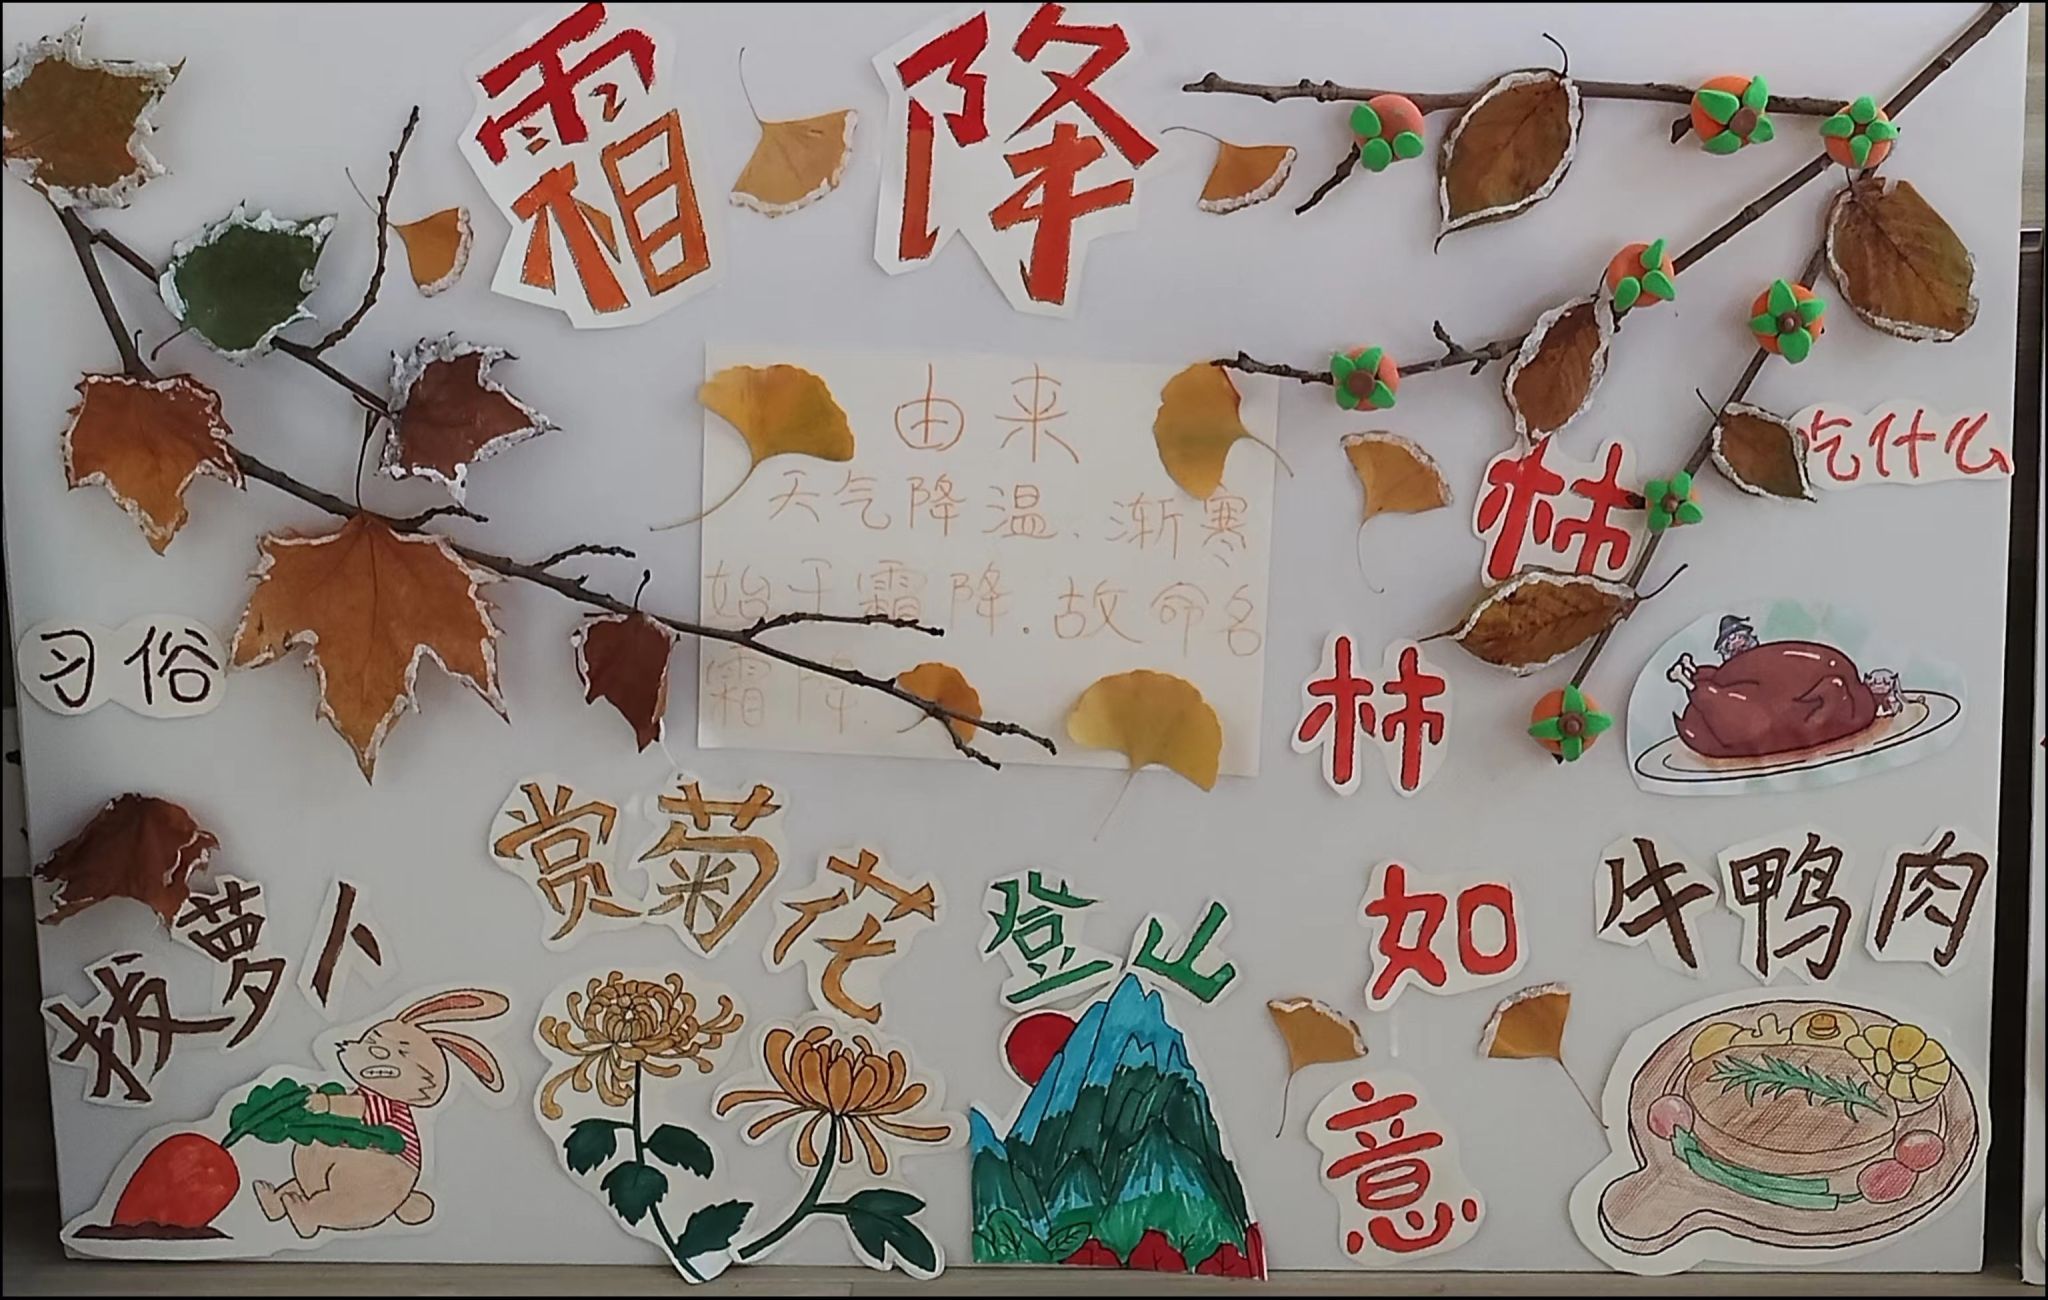 霜降
由来
天气降温、渐寒
始于霜降.故命名
霜降.
习俗
拔萝卜
赏菊花
登山
吃什么
柿
柿
如
意
牛鸭肉